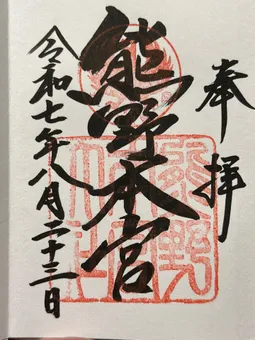 奉拝
熊野本宮
令和七年八月二十三日